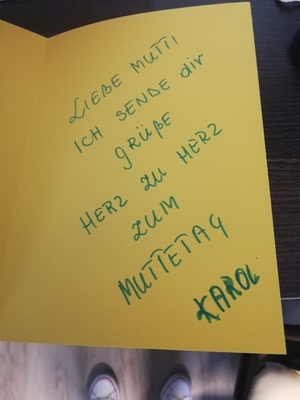 LIEBE MUTTI
ICH SENDE dir
GRÜßE
HERZ ZU HERZ
ZUM
MUTTETAG
KAROL